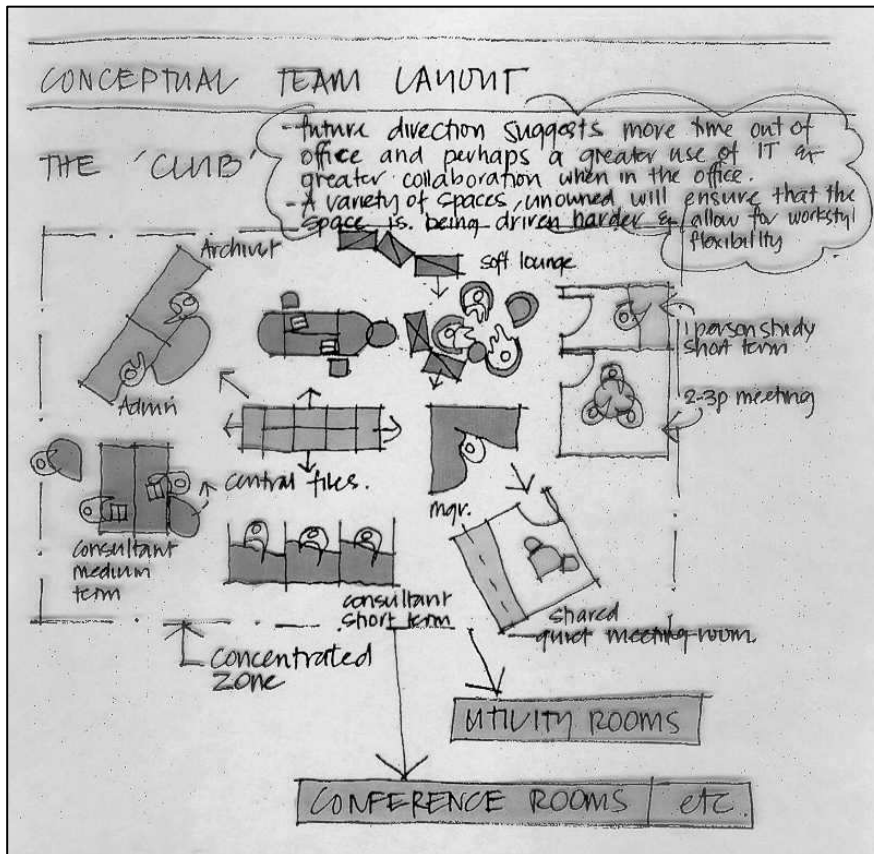 CONCEPTUAL TEAM LAYOUT
THE 'CLUB'
- future direction suggests more time out of
office and perhaps a greater use of IT &
greater collaboration when in the office.
- A variety of spaces, unowned will ensure that the
space is being driven harder & allow for workstyl
flexibility
Archivist
soft lounge
1 person study
short term
Admin
2-3p meeting
central files.
mgr.
consultant
medium
term
consultant
short term
shared
quiet meeting room.
concentrated
zone
UTILITY ROOMS
CONFERENCE ROOMS etc.